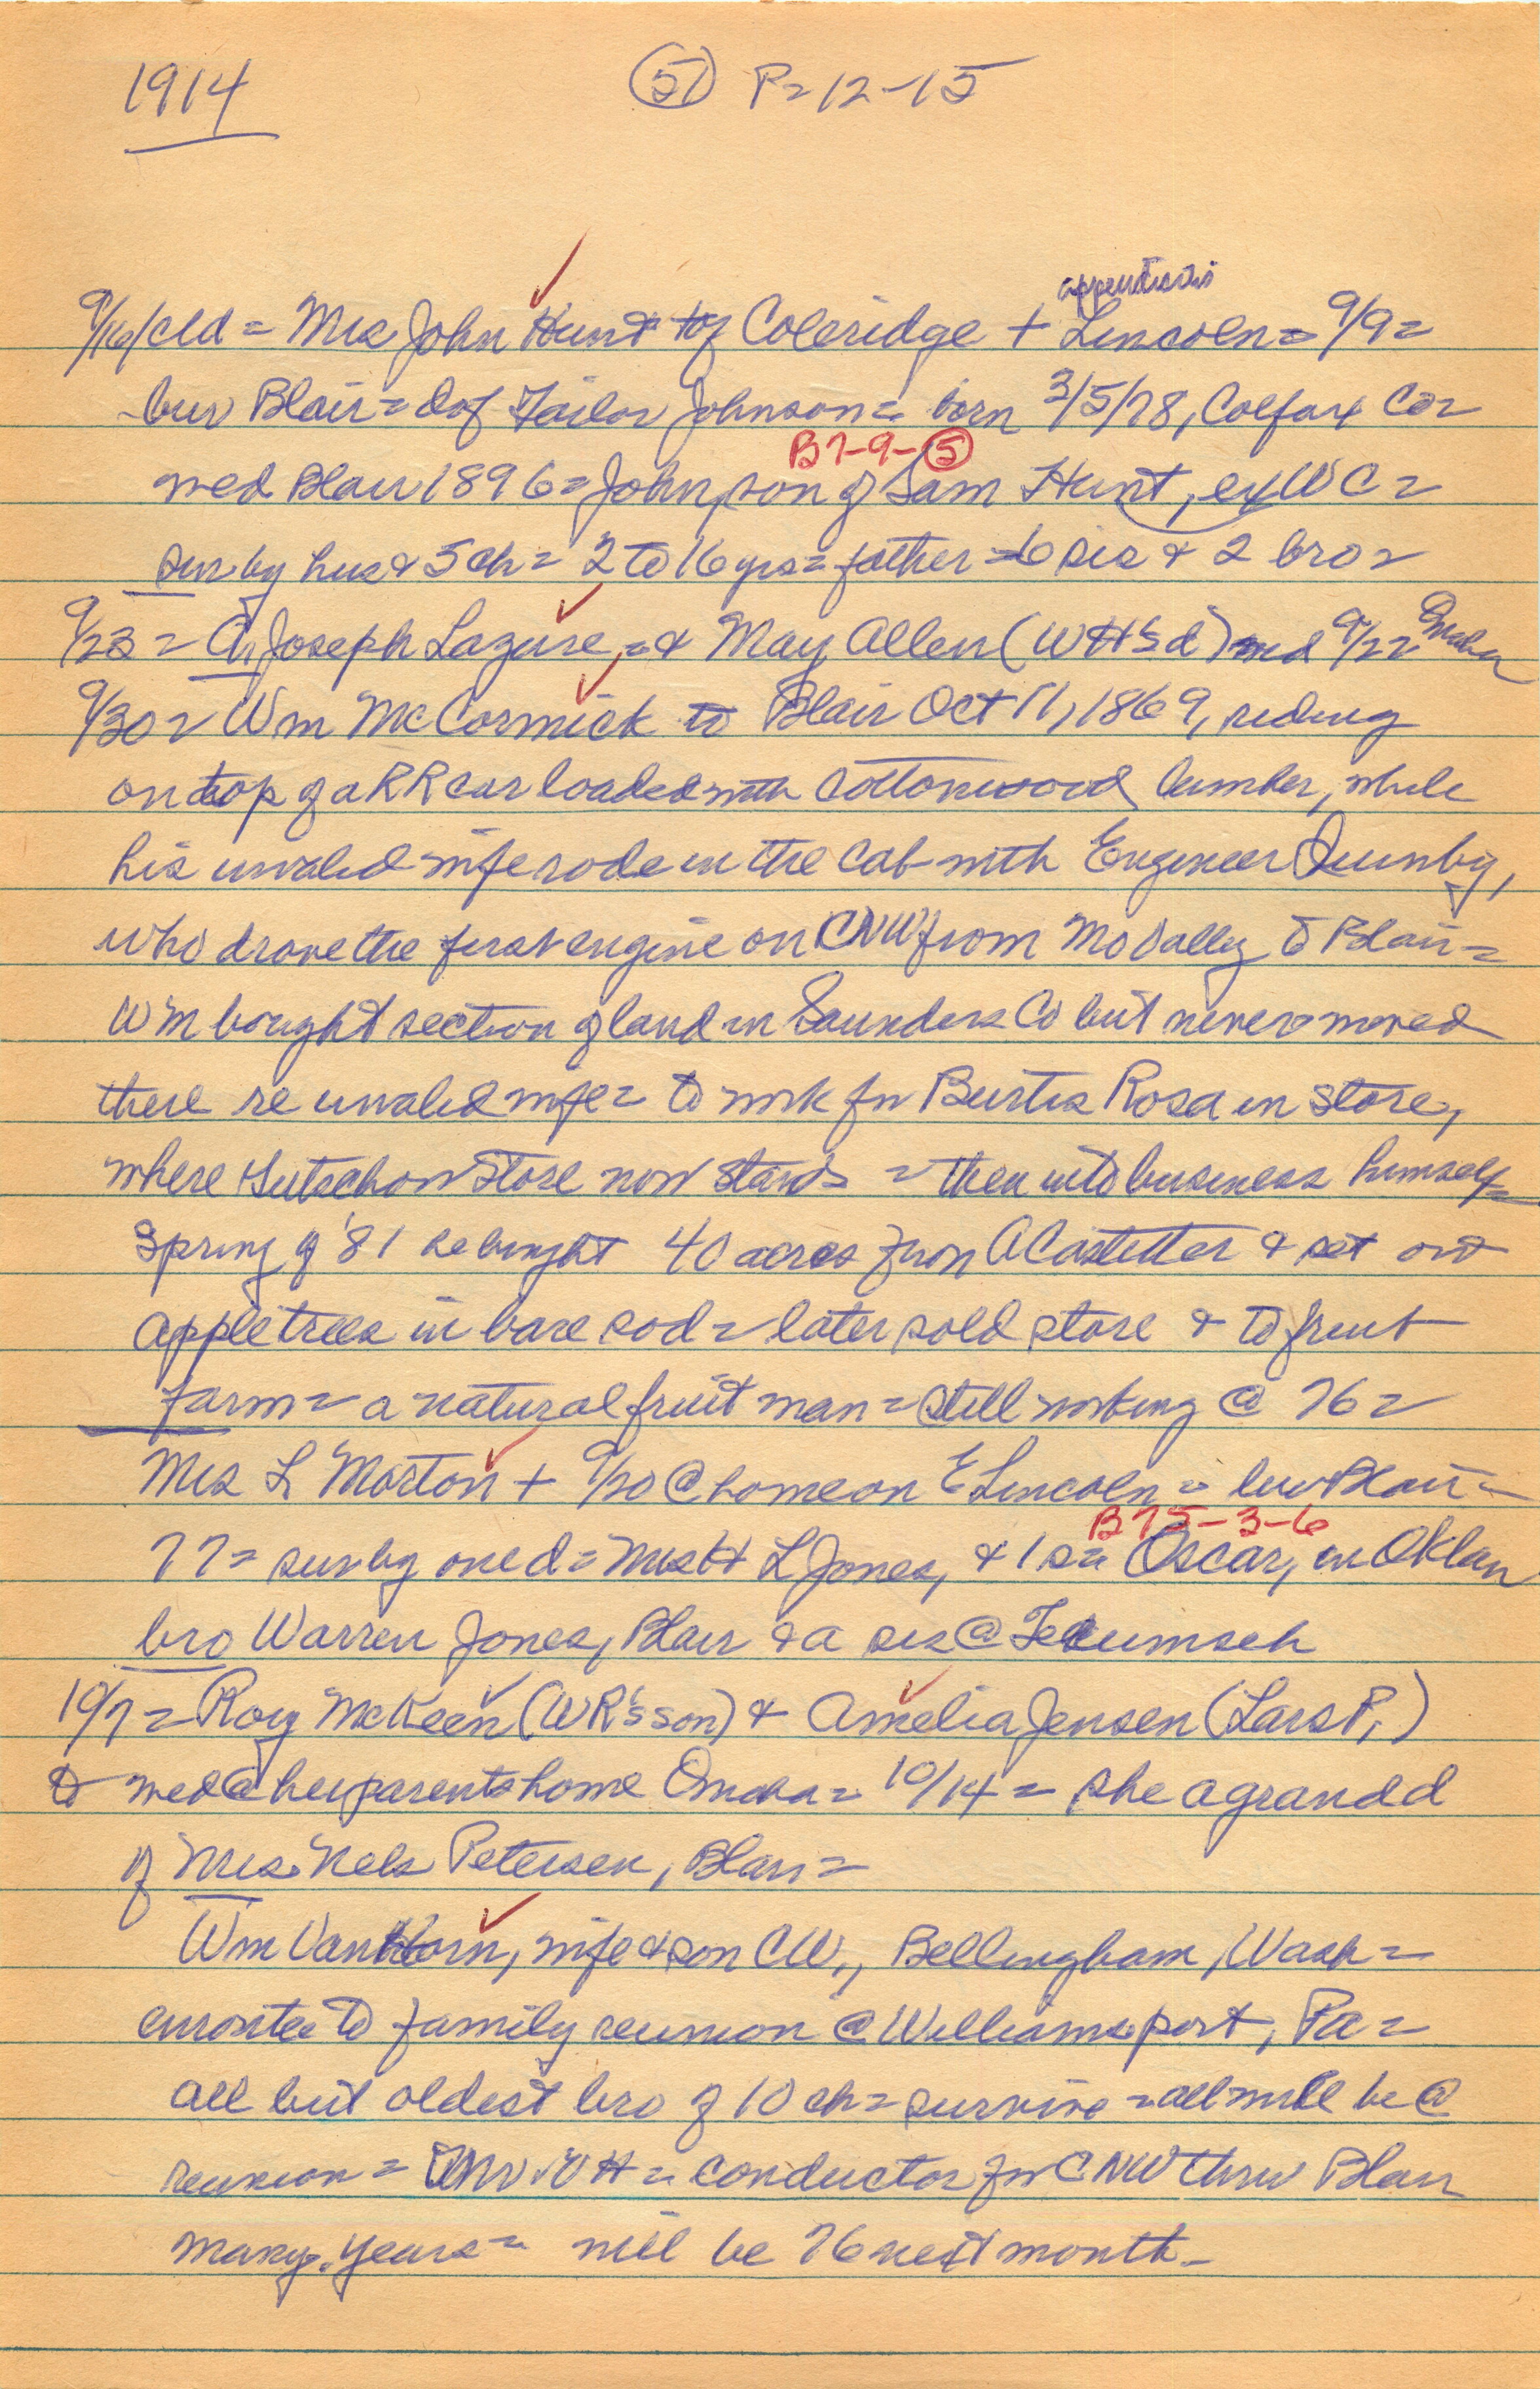 1914
(51) P=12-15
appendicitis
9/16/cld = Mrs John Hunt of Coleridge + Lincoln = 9/9 =
bur Blair = d of Tailor Johnson = born 3/5/78, Colfax Co =
B7-9-(5)
wed Blair 1896 = John, son of Sam Hunt, ex WC =
sur by hus & 5 ch = 2 to 16 yrs = father = 6 sis & 2 bro =
9/23 = Joseph Lazure = & May Allen (WH's d) wed 9/22 Omaha
9/30 = Wm McCormick to Blair Oct 11, 1869, riding
on top of a RR car loaded with cottonwood lumber, while
his invalid wife rode in the cab with Engineer Quinby,
who drove the first engine on CNW from Mo Valley to Blair =
Wm bought section of land in Saunders Co but never moved
there re invalid wife = to work for Burtis Rosa in store,
where Hutschow store now stands = then into business himself =
Spring of '81 he bought 40 acres from A Castetter & set out
apple trees in bare sod = later sold store & to fruit
farm = a natural fruit man = still working @ 76 =
Mrs L Morton + 9/20 @ home on E Lincoln = bur Blair =
B75-3-6
77 = sur by one d = Mrs H L Jones, & 1 s = Oscar, in Oklah
bro Warren Jones, Blair & a sis @ Tecumseh
10/7 = Roy McKeen (WR's son) & Amelia Jensen (Lars P.)
to wed @ her parents home Omaha = 10/14 = she a grandd
of Mrs Nels Petersen, Blair =
Wm VanHorn, wife & son CW., Bellingham, Wash =
enroute to family reunion @ Williamsport, Pa =
all but oldest bro of 10 ch = survive = all will be @
reunion = VH = conductor for CNW thru Blair
many years = will be 76 next month -